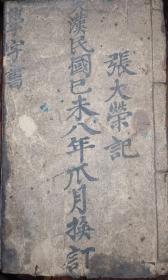 張大榮記
漢民國己未八年爪月換訂
字書